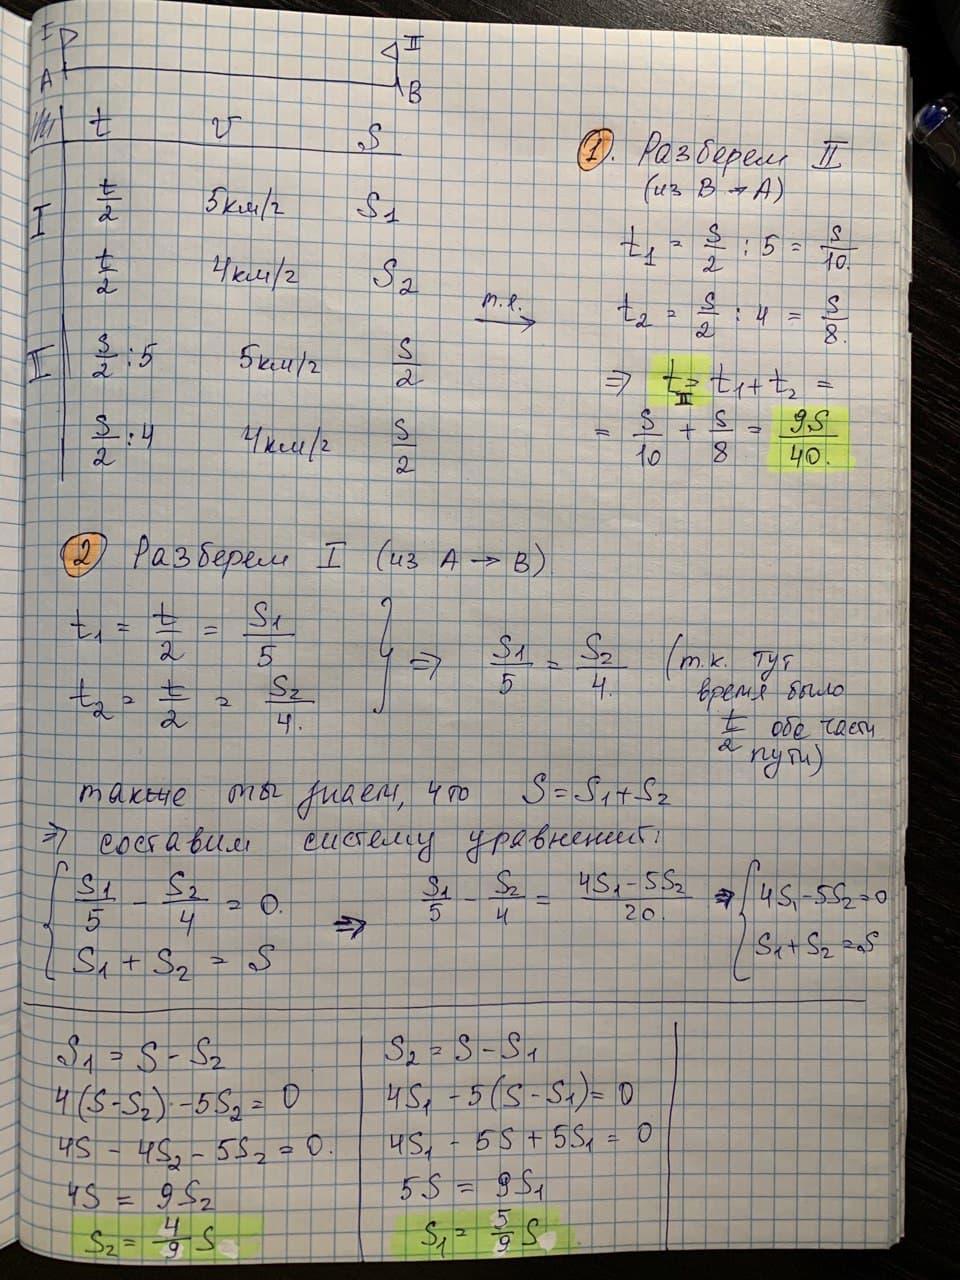 I II
A B
t v S
I t/2 5км/г S₁
t/2 4км/г S₂
т.е. →
II S/2 : 5 5км/г S/2
S/2 : 4 4км/г S/2
1. Разберем II
(из B → A)
t₁ = S/2 : 5 = S/10.
t₂ = S/2 : 4 = S/8.
⇒ t_II = t₁ + t₂ =
= S/10 + S/8 = 9S/40.
2 Разберем I (из A → B)
t₁ = t/2 = S₁/5
t₂ = t/2 = S₂/4.
} ⇒ S₁/5 = S₂/4. (т.к. тут
время было
t/2 обе части
пути)
также мы знаем, что S = S₁ + S₂
⇒ составим систему уравнений:
{ S₁/5 - S₂/4 = 0.
S₁ + S₂ = S
⇒ S₁/5 - S₂/4 = 4S₁ - 5S₂/20. ⇒ { 4S₁ - 5S₂ = 0
S₁ + S₂ = S
S₁ = S - S₂
4(S - S₂) - 5S₂ = 0
4S - 4S₂ - 5S₂ = 0.
4S = 9S₂
S₂ = 4/9 S
S₂ = S - S₁
4S₁ - 5(S - S₁) = 0
4S₁ - 5S + 5S₁ = 0
5S = 9S₁
S₁ = 5/9 S